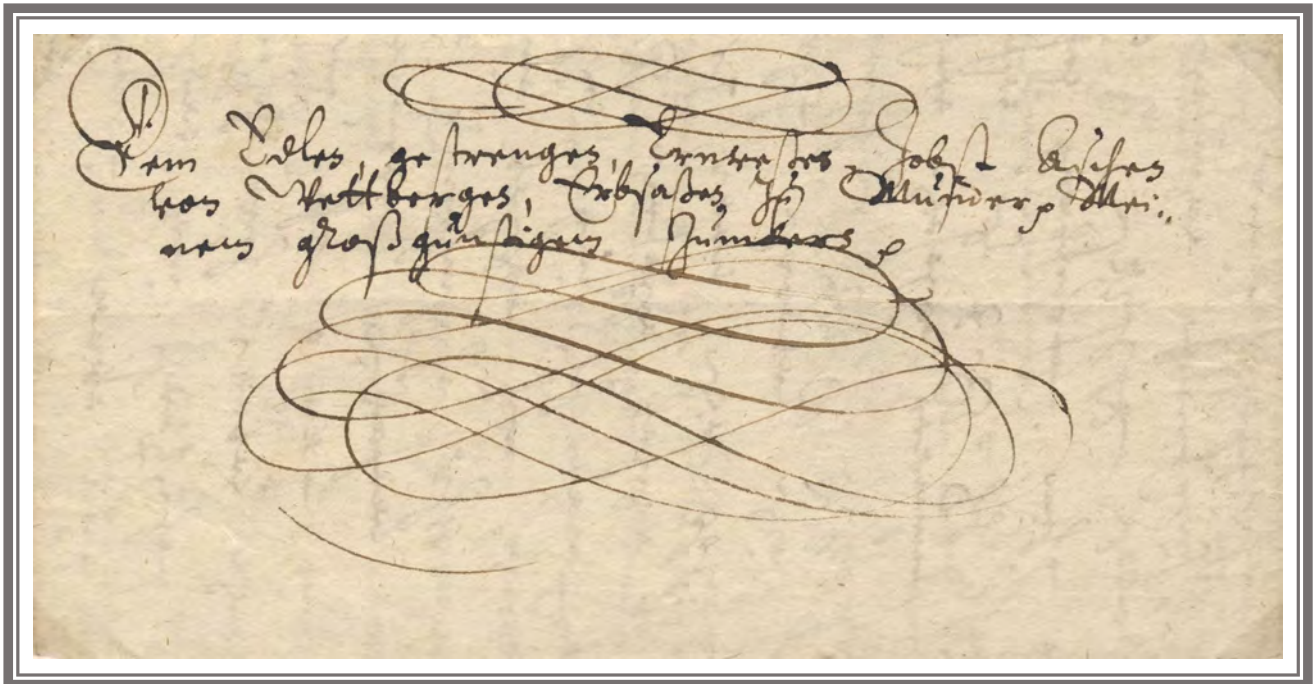 Dem Edlen, gestrengen, Ernvesten Jobst Aschen
von Wettbergen, Erbsaßen zu Münder, Mei„
nem großgünstigem Junckern